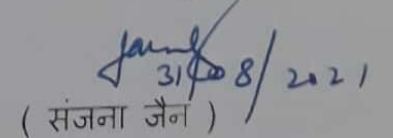 31/08/2021
( संजना जैन )